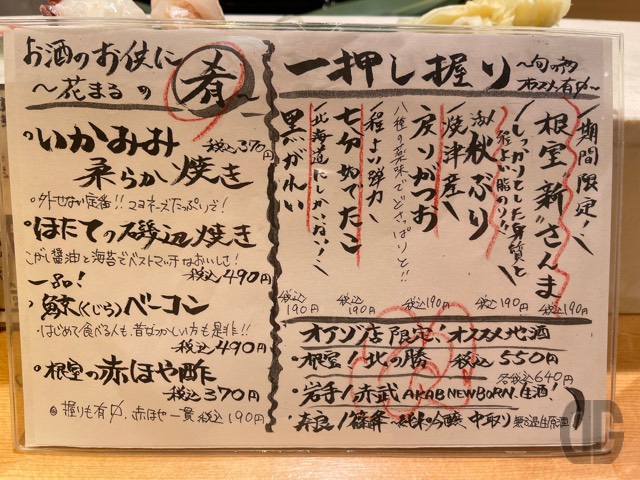 お酒のお供に
〜花まるの肴〜
・いかみみ 税込370円
柔らかい焼き
・外せない定番!!マヨネーズたっぷりで!
・ほたての磯辺焼き
こがし醤油と海苔でベストマッチなおいしさ!
税込490円
一品!
・鯨(くじら)ベーコン
・はじめて食べる人も、昔なつかしい方も是非!!
税込490円
・根室の赤ほや酢
税込370円
◎握りも有〼 赤ほや一貫 税込190円
一押し握り
期間限定!
根室"新"さんま
税込190円
しっかりとした身質と
程よい脂のり!!
秋ぶり
税込190円
焼津産
戻りがつお
八種の薬味でどさっぱりと!!
税込190円
程よい弾力
七分ゆでたこ
税込190円
北海道にしかいない!
黒がれい
税込190円
オアゾ店限定!オススメ地酒
・根室!北の勝 税込550円
・岩手!赤武 AKABU NEWBORN 生酒!
各税込640円
・奈良!篠峯 〜純米吟醸 中取り 無ろ過生原酒